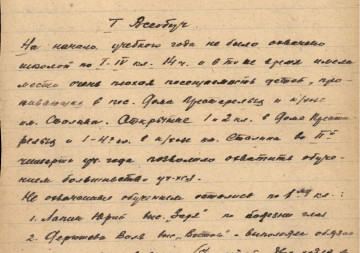 I Всеобуч.
На начало учебного года не было охвачено
школой по I-IV кл. 14 ч. и в то же время имела
место очень плохая посещаемость детей, про-
живающих в пос. Дома Престарелых и к/озе
им. Сталина. Открытие 1 и 2 кл. в Доме Преста
релых и 1-4 кл. в к/озе им. Сталина во IIой
четверти уч. года позволило охватить обуче-
нием большинство уч-хся.
Не охваченных обучением осталось по 1ым кл.:
1. Лапин Юрий выс. "Заря" по болезни глаз
2. Валя выс. "Восток" -